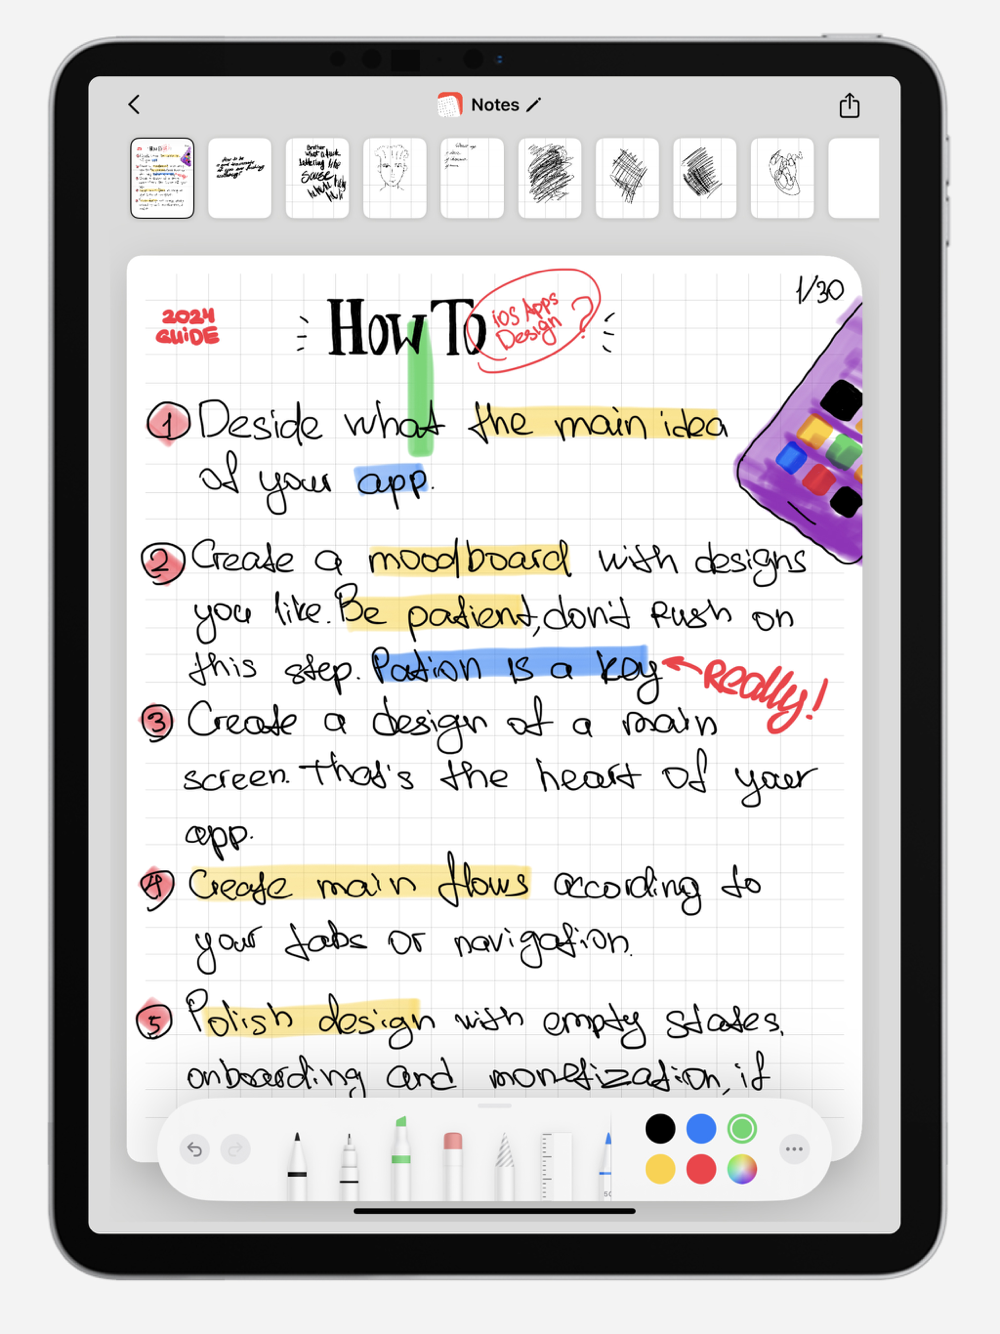 Notes
1/30
2024
GUiDE
How To
iOS Apps
Design?
1 Deside what the main idea
of your app.
2 Create a moodboard with designs
you like. Be patient, don't rush on
this step. Pation is a key
Really!
3 Create a design of a main
screen. That's the heart of your
app.
4 Create main flows according to
your tabs or navigation.
5 Polish design with empty states,
onboarding and monetization, if